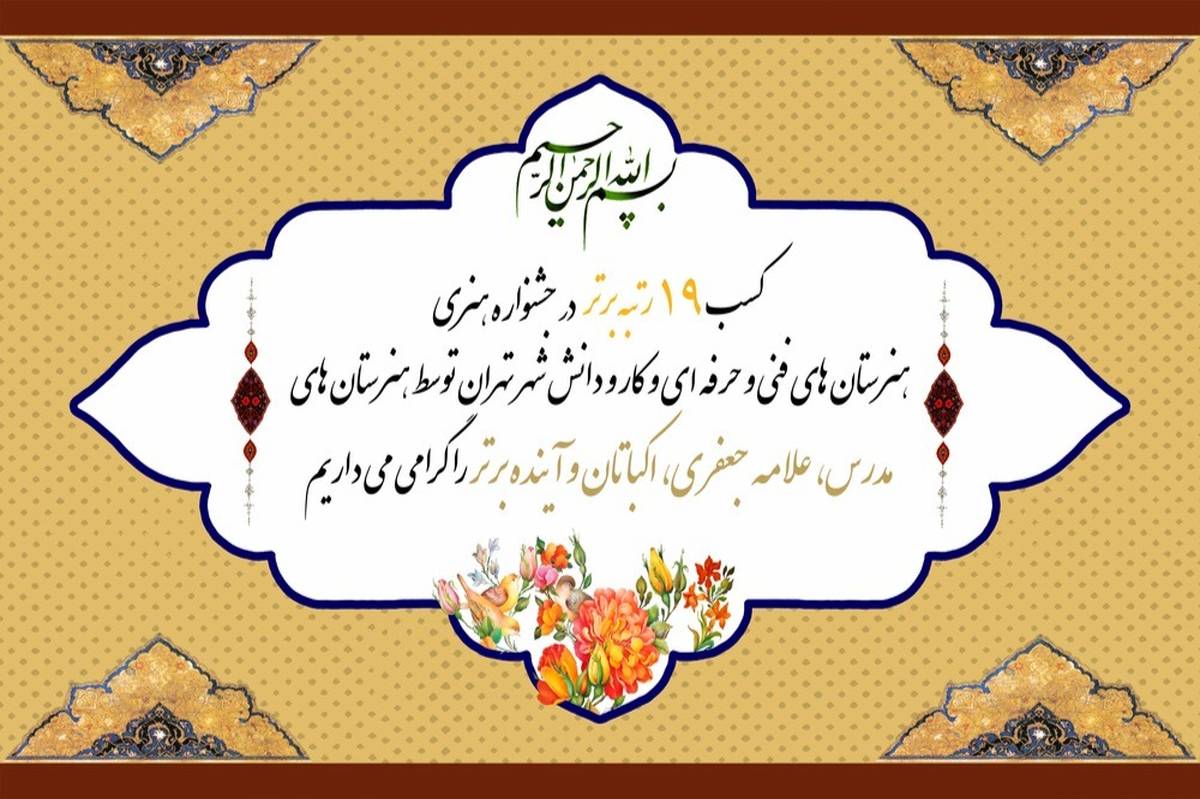 بسم الله الرحمن الرحیم
کسب ۱۹ رتبه برتر در جشنواره هنری
هنرستان های فنی و حرفه ای و کار و دانش شهر تهران توسط هنرستان های
مدرس، علامه جعفری، اکباتان و آینده برتر را گرامی می داریم